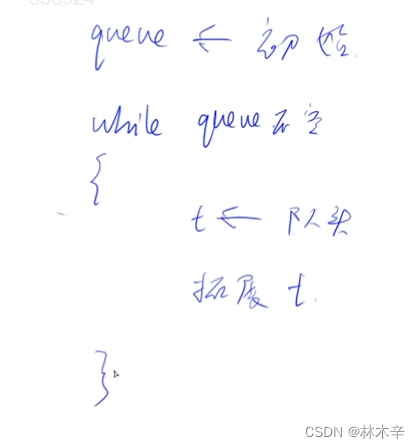 queue ← 初始
while queue不空
{
t ← 队头
拓展 t
}
CSDN @林木辛